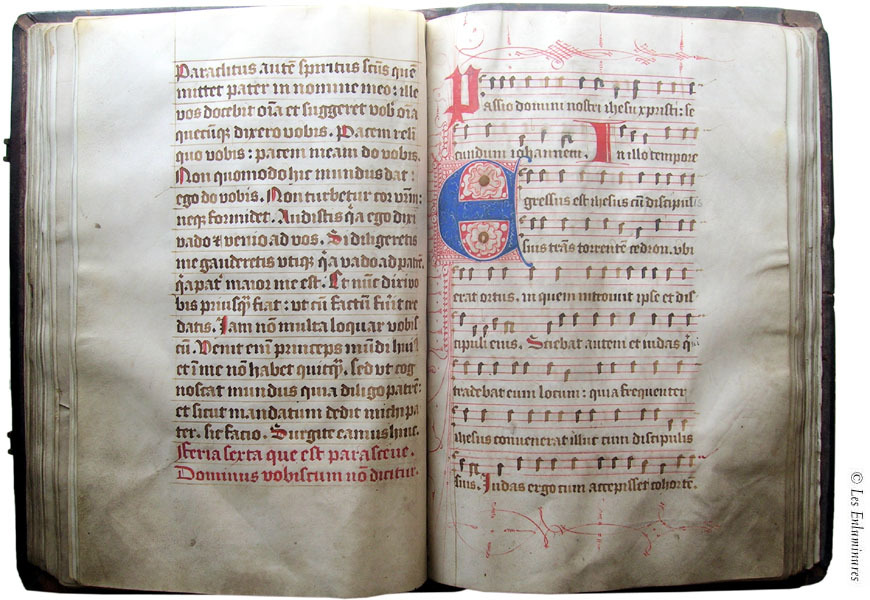 Paraclitus autē spiritus scūs quē
mittet pater in nomine meo: ille
vos docebit oīa et suggeret vob oīa
quecūqꝫ dixero vobis. Pacem reli
quo vobis: pacem meam do vobis.
Non quomodo hic mundus dat:
ego do vobis. Non turbetur cor vr̄m:
neqꝫ formidet. Audistis qꝛ ego dixi
vado ⁊ venio ad vos. Si diligeretis
me gauderetis vtiqꝫ qꝛ vado ad patrē.
qꝛ pat̓ maior me est. Et nūc dixi vo
bis priusqꝫ fiat: vt cū factū fu̓it cre
datis. Iam nō multa loquar vobis
cū. Venit enī princeps mūdi hui᷒
et ī me nō habet quicqꝫ. sed vt cog
noscat mundus quia diligo patrē:
et sicut mandatum dedit michi pa
ter. sic facio. Surgite eamus hinc.
Feria sexta que est parasceue.
Dominus vobiscum nō dicitur.
Passio domini nostri ihesu xpristi: se
cundum iohannem. In illo tempore
Egressus est ihesus cū discipulis
suis trās torrentē cedron. vbi
erat ortus. in quem introiuit ipse et dis
cipuli eius. Sciebat autem et iudas qͥ
tradebat eum locum: quia frequenter
ihesus conuenerat illuc cum discipulis
suis. Iudas ergo cum accepisset cohortē.
© Les Enluminures